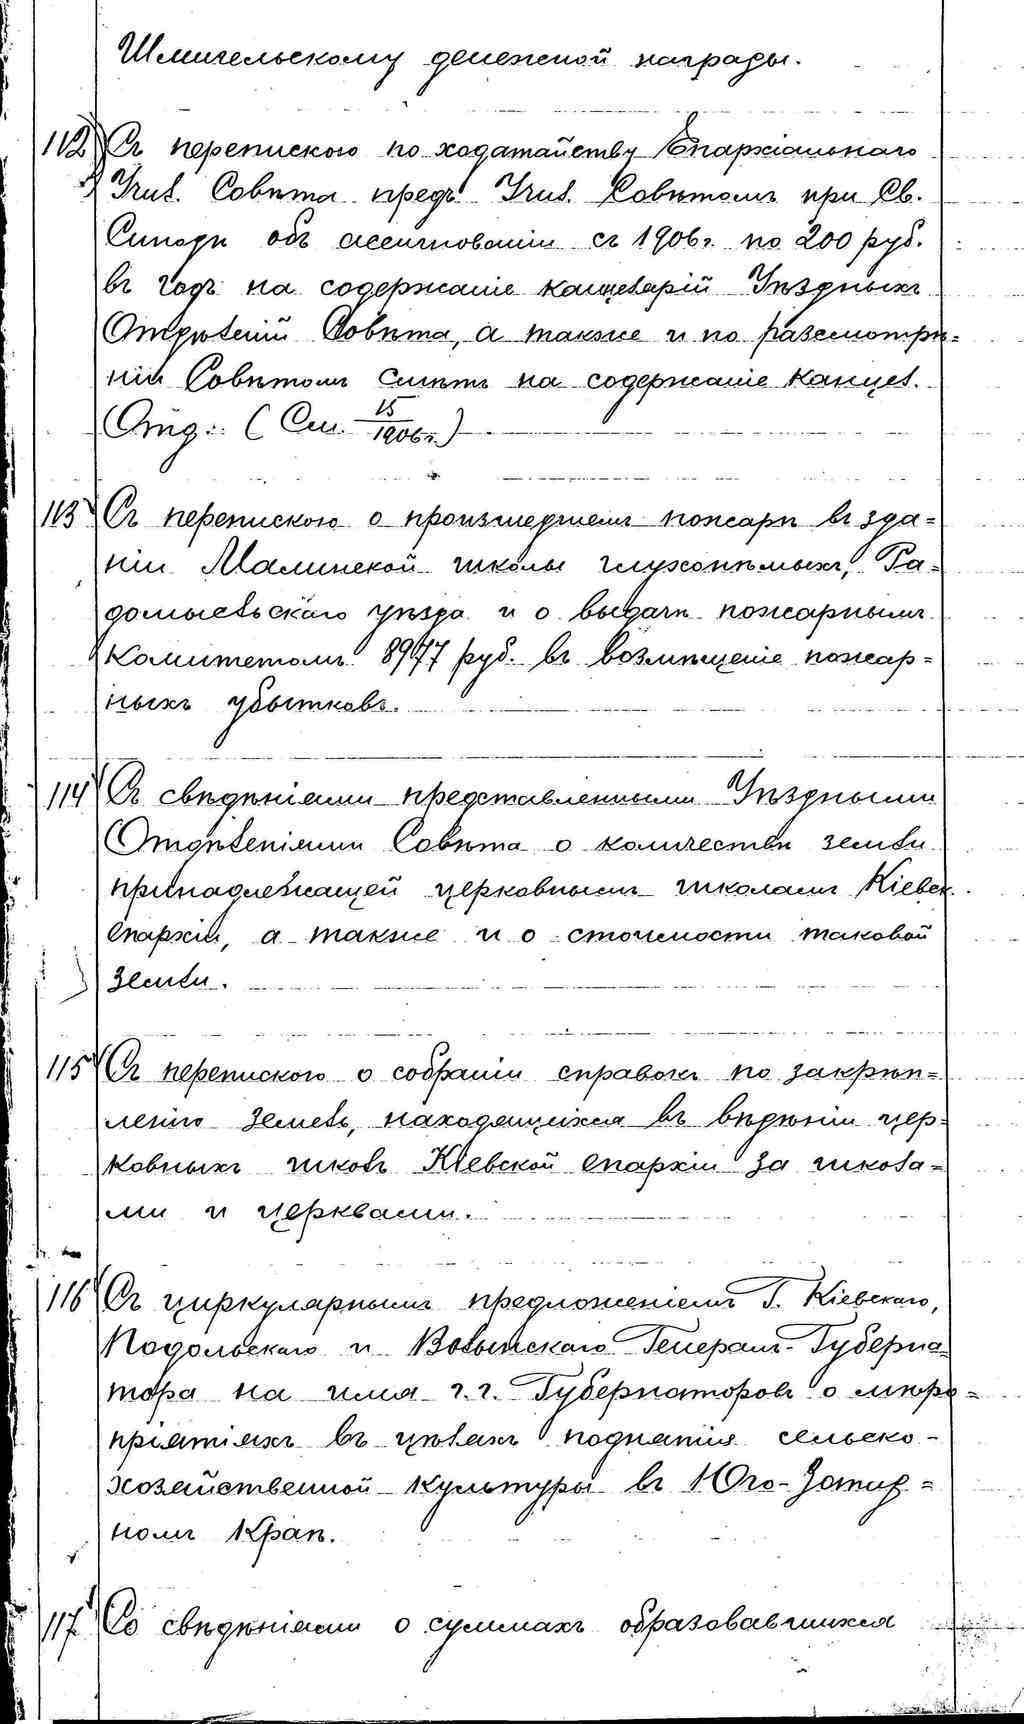 Шмигельскому денежной награды.
112 Съ перепискою по ходатайству Епархіальнаго
Учил. Совѣта предъ Учил. Совѣтомъ при Св.
Синодѣ объ ассигнованіи съ 1906 г. по 200 руб.
въ годъ на содержаніе канцелярій Уѣздныхъ
Отдѣленій Совѣта, а также и по разсмотрѣ=
нію Совѣтомъ смѣтъ на содержаніе канцел.
Отд.: (См. 15/1906 г.)
113 Съ перепискою о происшедшемъ пожарѣ въ зда=
ніи Малинской школы глухонѣмыхъ, Ра=
домысльскаго уѣзда и о выдачѣ пожарнымъ
комитетомъ 8977 руб. въ возмѣщеніе пожар=
ныхъ убытковъ.
114 Съ свѣдѣніями представленными Уѣздными
Отдѣленіями Совѣта о количествѣ земли
принадлежащей церковнымъ школамъ Кіевск.
епархіи, а также и о стоимости таковой
земли.
115 Съ перепискою о собраніи справокъ по закрѣп=
ленію земель, находящихся въ вѣдѣніи цер=
ковныхъ школъ Кіевской епархіи за школа=
ми и церквами.
116 Съ циркулярнымъ предложеніемъ Г. Кіевскаго,
Подольскаго и Волынскаго Генералъ-Губерна=
тора на имя г.г. Губернаторовъ о мѣро=
пріятіяхъ въ цѣляхъ поднятія сельско-
хозяйственной культуры въ Юго-Запад=
номъ Краѣ.
117 Со свѣдѣніями о суммахъ образовавшихся